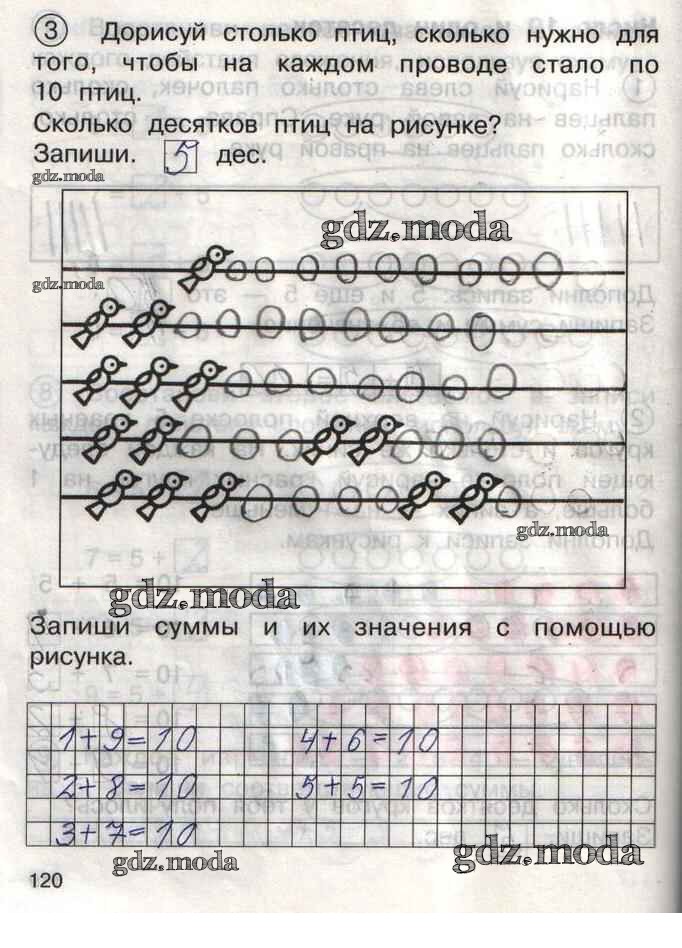 ③ Дорисуй столько птиц, сколько нужно для
того, чтобы на каждом проводе стало по
10 птиц.
Сколько десятков птиц на рисунке?
Запиши. 5 дес.
gdz.moda
gdz.moda
gdz.moda
gdz.moda
gdz.moda
Запиши суммы и их значения с помощью
рисунка.
1+9=10 4+6=10
2+8=10 5+5=10
3+7=10
gdz.moda gdz.moda
120